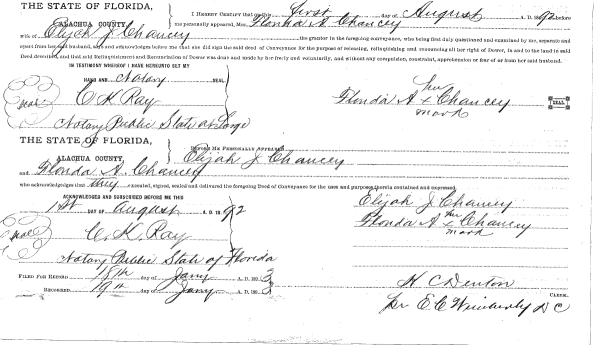 THE STATE OF FLORIDA,
ALACHUA COUNTY.
I HEREBY CERTIFY that on this first day of August A. D. 1892 before
me personally appeared, Mrs. Florida A Chancey
wife of Elijah J Chancey the grantor in the foregoing conveyance, who being first duly questioned and examined by me, separate and
apart from her said husband, says and acknowledges before me that she did sign the said deed of Conveyance for the purpose of releasing, relinquishing and renouncing all her right of Dower, in and to the land in said
Deed described, and that said Relinquishment and Renunciation of Dower was done and made by her freely and voluntarily, and without any compulsion, constraint, apprehension or fear of or from her said husband.
IN TESTIMONY WHEREOF I HAVE HEREUNTO SET MY
HAND AND Notary SEAL
Seal
C K Ray
Notary Public State at Large
her
Florida A x Chancey
mark
SEAL
THE STATE OF FLORIDA,
ALACHUA COUNTY.
BEFORE ME PERSONALLY APPEARED Elijah J Chancey
and Florida A. Chancey
who acknowledges that they executed, signed, sealed and delivered the foregoing Deed of Conveyance for the uses and purposes therein contained and expressed.
ACKNOWLEDGED AND SUBSCRIBED BEFORE ME THIS
1st DAY OF August A. D. 1892
Seal
C. K. Ray
Notary Public State of Florida
Elijah J Chancey
her
Florida A x Chancey
mark
FILED FOR RECORD 18th day of Jany A. D. 1893
RECORDED 19th day of Jany A. D. 1893
H C Denton
CLERK.
per E C Wimberly D C